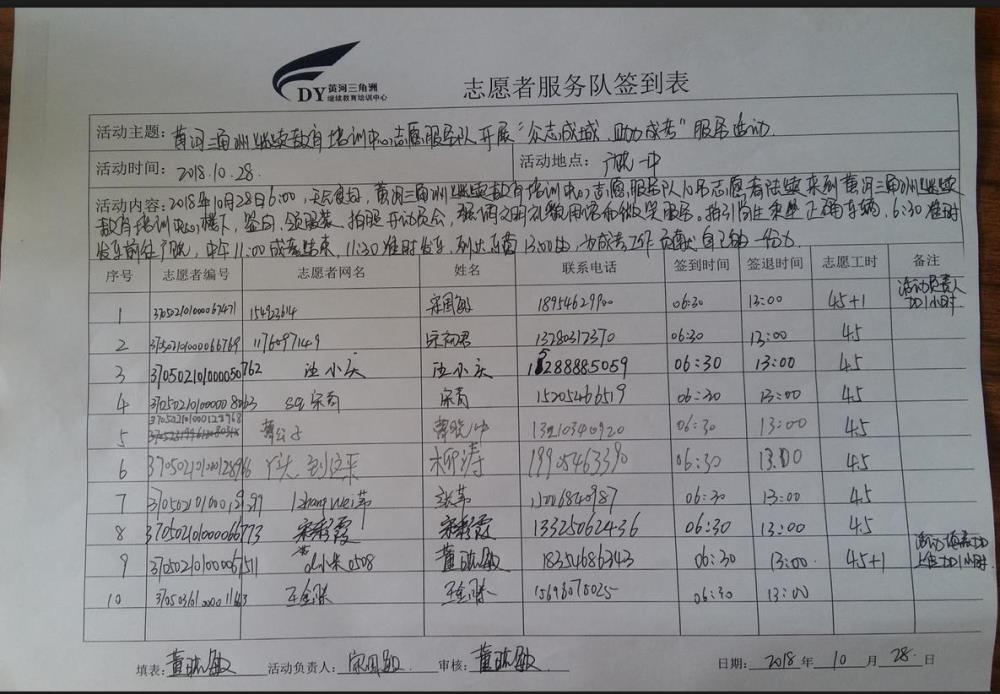 DY 黄河三角洲
继续教育培训中心
志愿者服务队签到表
活动主题: 黄河三角洲继续教育培训中心志愿服务队开展“众志成城 助力成考”服务活动.
活动时间: 2018.10.28. 活动地点: 广饶一中
活动内容:2018年10月28日6:00,天气良好,黄河三角洲继续教育培训中心志愿服务队10名志愿者陆续来到黄河三角洲继续
教育培训中心楼下,签到,领服装,拍照开动员会,强调文明礼貌用语和微笑服务。指引考生乘坐正确车辆,6:30准时
发车前往广饶,中午11:00成考结束,11:30准时发车,到达东营13:00由,为成考工作贡献自己的一份力.
序号 志愿者编号 志愿者网名 姓名 联系电话 签到时间 签退时间 志愿工时 备注
1 370502101000067471 154923614 宋国敏 18954629900 06:30 13:00 4.5+1 活动负责人
加1小时
2 370502101000066769 1176097149 06:30 13:00 4.5
3 3705021010000050762 汪小庆 汪小庆 15288885059 06:30 13:00 4.5
4 sq宋菊 宋菊 15205466519 06:30 13:00 4.5
370502101000128968
5 曹公子 曹晓冲 13210340920 06:30 13:00 4.5
6 370502101000128966 丫头 到这来 柳涛 19905463390 06:30 13:00 4.5
7 张苇 15006840987 06:30 13:00 4.5
8 3705021010000066773 宋彩霞 宋彩霞 13325062436 06:30 13:00 4.5
9 3705021010000067511 黄小米0508 董晓敏 18350686343 06:30 13:00 4.5+1 活动负责加
上传加1小时.
10 王金胜 王金胜 15698070025 06:30 13:00
填表: 董晓敏 活动负责人: 宋国敏 审核: 董晓敏 日期: 2018 年 10 月 28 日